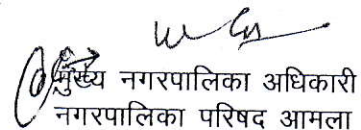 मुख्य नगरपालिका अधिकारी
नगरपालिका परिषद आमला